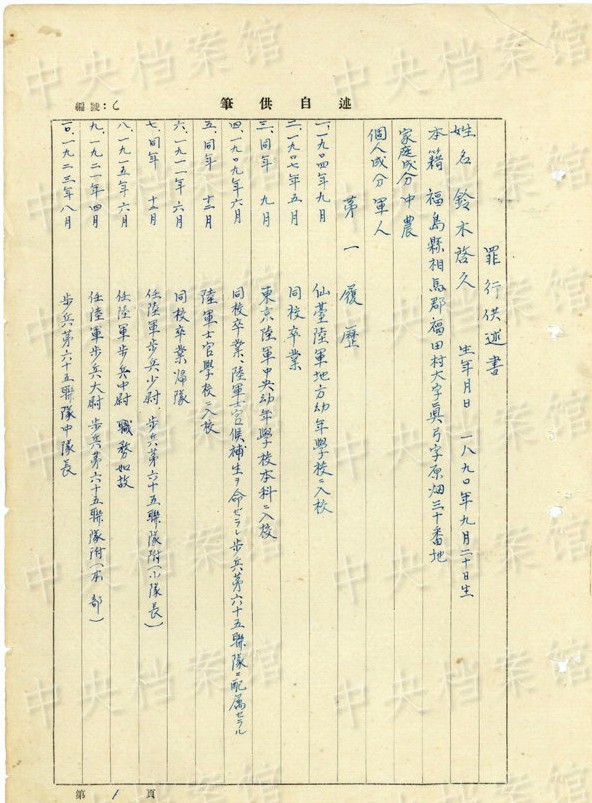 述自供筆
編號: 乙
罪行供述書
姓名 鈴木啓久 生年月日 一八九〇年九月二十日生
本籍 福島縣相馬郡福田村大字眞弓字原畑三十番地
家庭成分 中農
個人成分 軍人
第一 履歷
一、一九〇四年九月 仙臺陸軍地方幼年學校ニ入校
二、一九〇七年五月 同校卒業
三、同年 九月 東京陸軍中央幼年學校本科ニ入校
四、一九〇九年六月 同校卒業、陸軍士官候補生ヲ命セラレ步兵第六十五聯隊ニ配属セラル
五、同年 十二月 陸軍士官學校ニ入校
六、一九一一年六月 同校卒業歸隊
七、同年 十二月 任陸軍步兵少尉、步兵第六十五聯隊附(小隊長)
八、一九一五年六月 任陸軍步兵中尉 職務如故
九、一九二一年四月 任陸軍步兵大尉 步兵第六十五聯隊附(本部)
一〇、一九二三年八月 步兵第六十五聯隊中隊長
第 1 頁
中央档案馆